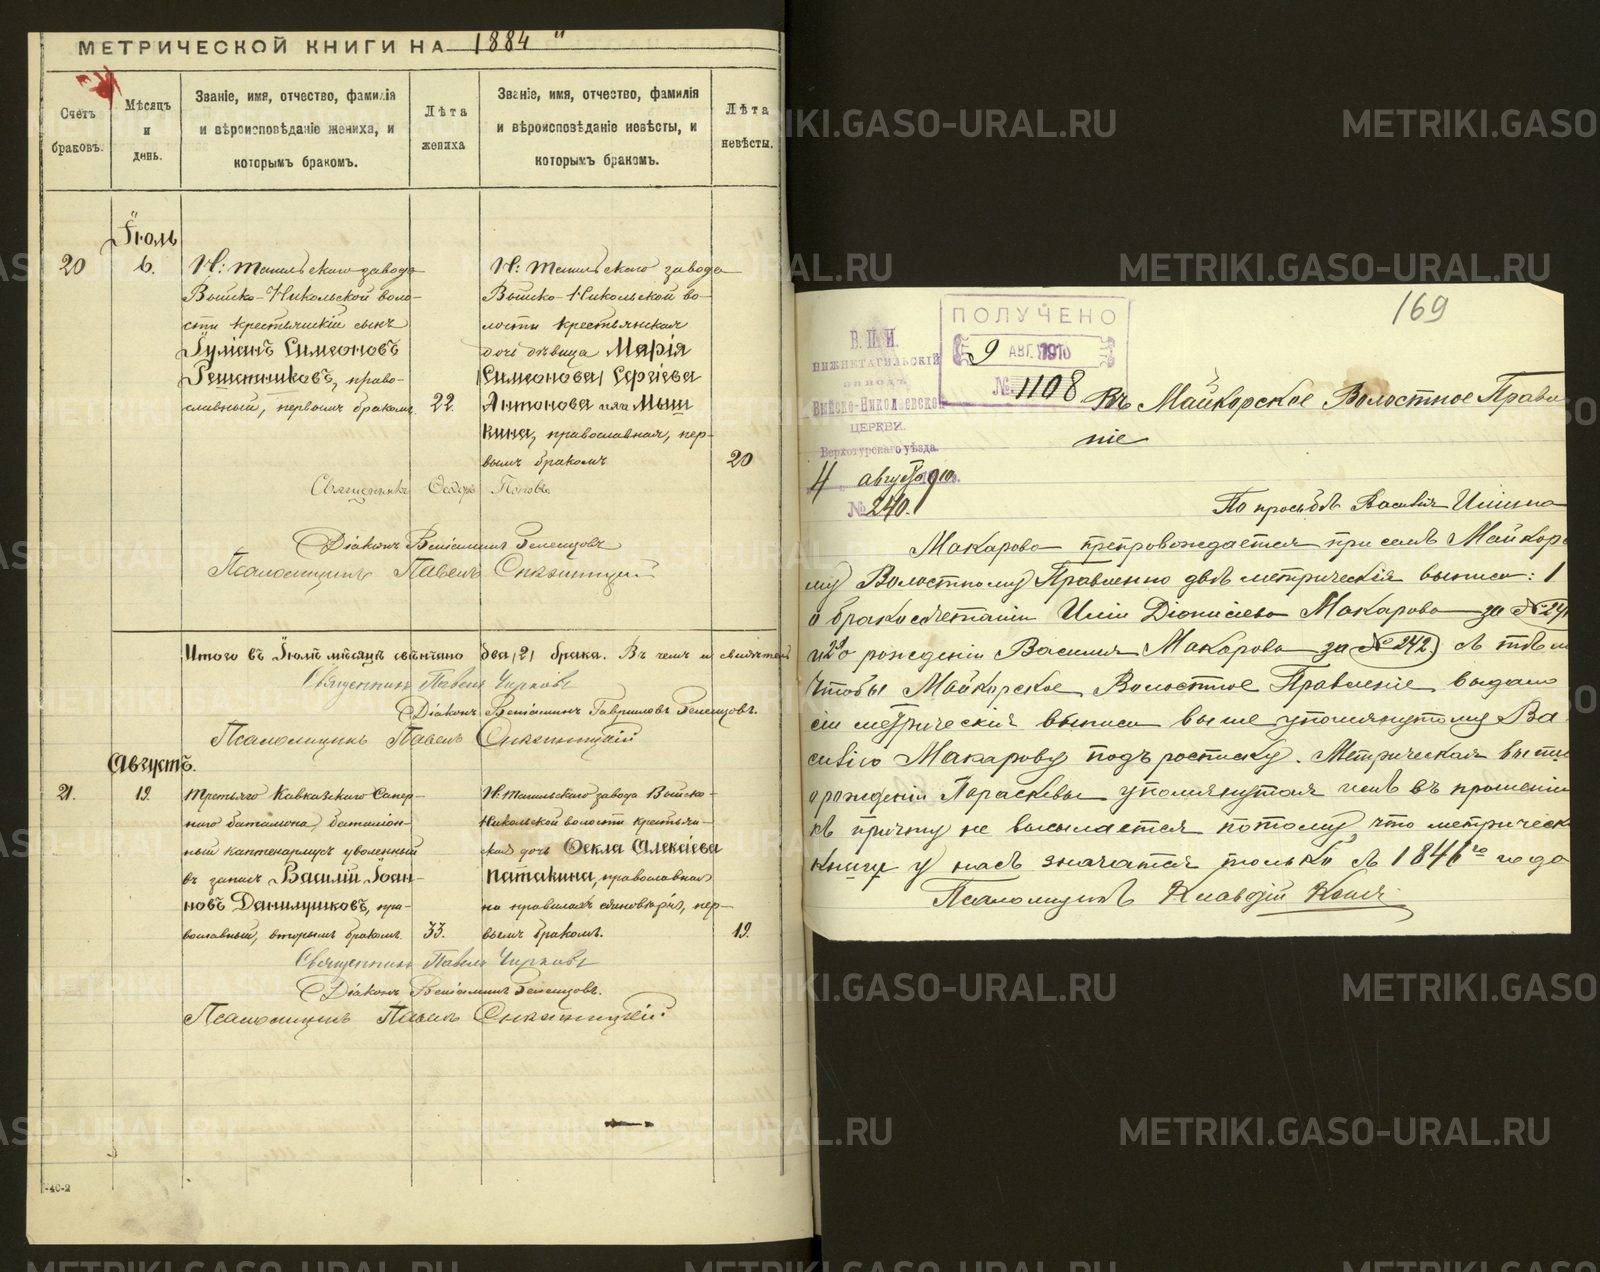 МЕТРИЧЕСКОЙ КНИГИ НА 1884
Счетъ браковъ.
Мѣсяцъ и день.
Званіе, имя, отчество, фамилія и вѣроисповѣданіе жениха, и которымъ бракомъ.
Лѣта жениха
Званіе, имя, отчество, фамилія и вѣроисповѣданіе невѣсты, и которымъ бракомъ.
Лѣта невѣсты.
Іюль
20
6.
Н: Тагильскаго завода
Выйско-Никольской воло-
сти крестьянскій сынъ
Іуліанъ Симеоновъ
Решетниковъ, право-
славный, первымъ бракомъ
22.
Н: Тагильскаго завода
Выйско-Никольской во-
лости крестьянская
дочь дѣвица Марія
(Симеонова) Сергіева
Антонова или Мыш
кина, православная, пер-
вымъ бракомъ
20
Священникъ Ѳеодоръ Поповъ
Діаконъ Веніаминъ
Псаломщикъ Павелъ
Итого въ Іюлѣ мѣсяцѣ свѣнчано два (2) брака. Въ чемъ и свидѣтел
Священникъ Павелъ Чирковъ
Діаконъ Веніаминъ Гавриловъ
Псаломщикъ Павелъ
Августъ.
21.
19.
Третьяго Кавказскаго Сапер-
наго баталіона, баталіон-
ный каптенармусъ уволенный
въ запасъ Василій Іоан-
новъ Данилушковъ, пра-
вославный, вторымъ бракомъ.
33.
Н. Тагильскаго завода Выйско-
Никольской волости крестьян-
ская дочь Ѳекла Алексіева
Патакина, православная
на правилахъ единовѣрія, пер-
вымъ бракомъ.
19.
Священникъ Павелъ Чирковъ
Діаконъ Веніаминъ
Псаломщикъ Павелъ
-40-2
169
ПОЛУЧЕНО
9 АВГ. 1910
№ 1108
В. П. И.
НИЖНЕТАГИЛЬСКІЙ
заводъ
Выйско-Николаевской
ЦЕРКВИ.
Верхотурскаго уѣзда.
4 августа 1910
№ 240.
Въ Майкорское Волостное Правле
ніе
По просьбѣ Василія Ильина
Макарова препровождается при семъ Майкорс
му Волостному Правленію двѣ метрическія выписи: 1
о бракосочетаніи Иліи Діонисіева Макарова за № 241
и 2 о рожденіи Василія Макарова за № 242) съ тѣмъ
чтобы Майкорское Волостное Правленіе выдало
сіи метрическія выписи выше упомянутому Ва
силію Макарову подъ росписку. Метрическая выпи
о рожденіи Параскевы упомянутая имъ въ прошеніи
къ причту не высылается потому, что метрическ
книги у насъ значатся только съ 1846го года
Псаломщикъ Клавдій
METRIKI.GASO-URAL.RU